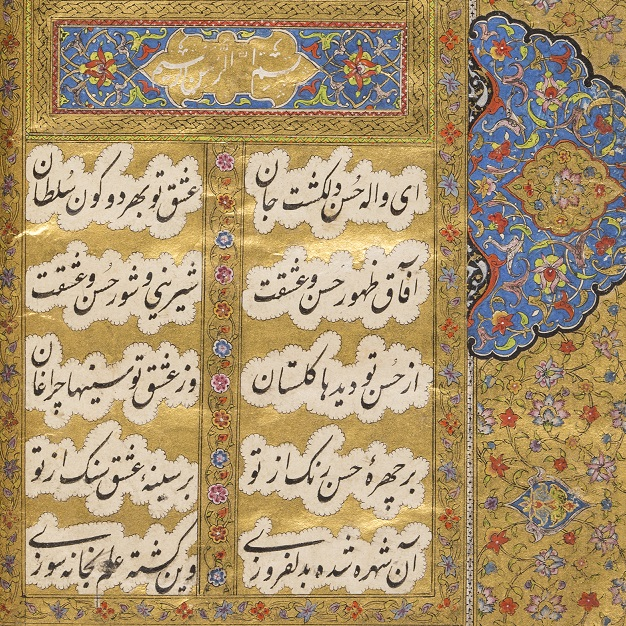 بسم الله الرحمن الرحیم
ای واله حُسن دلکشت جان عشق تو بهر دو کون سُلطان
آفاق ظهور حسن و عشقت شیرینی و شور حُسن و عشقت
از حُسن تو دیدها کلستان وز عشق تو سینها چراغان
بر چهرۀ حسن رنک از تو بر سینۀ عشق سنک از تو
آن شهره شده بدلفروزی وین کشته علم بخانه سوزی